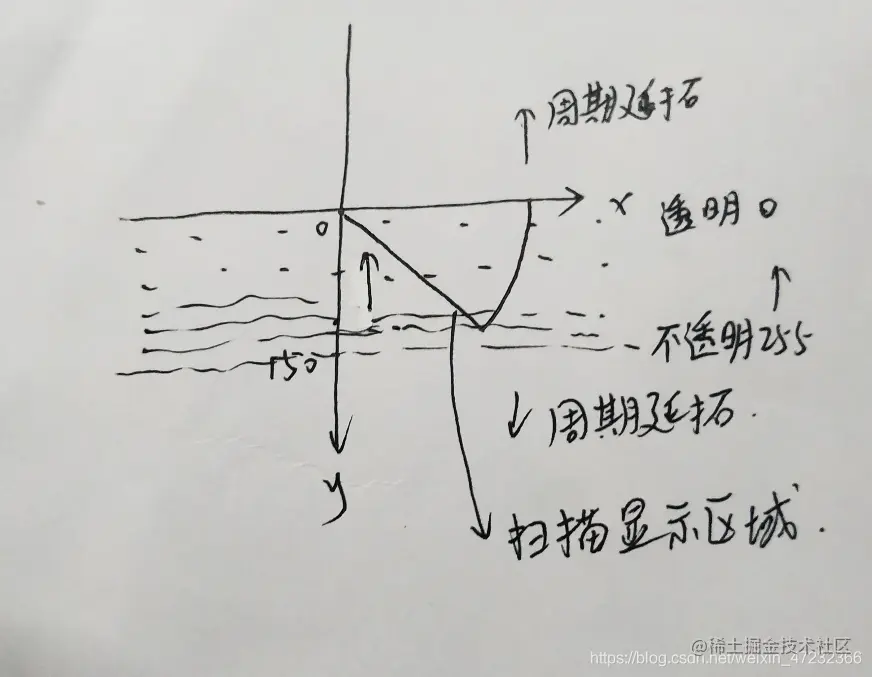 周期延拓
x
透明0
0
不透明255
150
周期延拓.
y
扫描显示区域.
@稀土掘金技术社区
https://blog.csdn.net/weixin_47232366